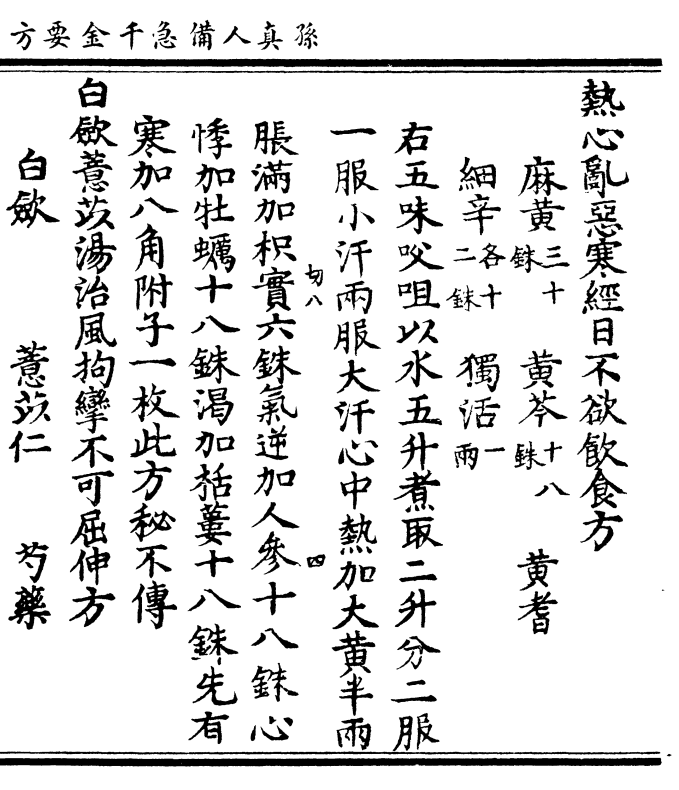 孫真人備急千金要方
熱心亂惡寒經日不欲飲食方
麻黃三十銖 黃芩十八銖 黃耆
細辛各十二銖 獨活一兩
右五味㕮咀以水五升煮取二升分二服
一服小汗兩服大汗心中熱加大黃半兩
脹滿加枳實六銖氣逆加人參十八銖心
悸加牡蠣十八銖渴加栝蔞十八銖先有
寒加八角附子一枚此方秘不傳
白歛薏苡湯治風拘攣不可屈伸方
白歛 薏苡仁 芍藥
切八
四